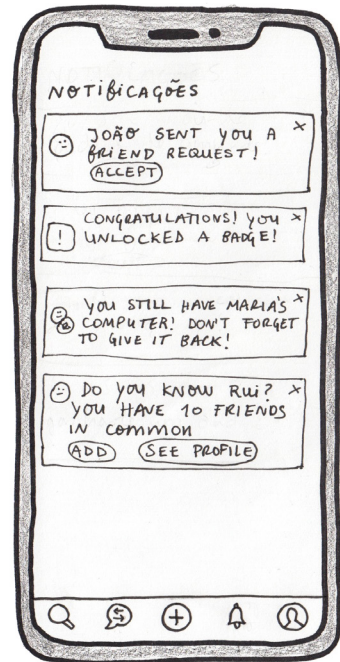 NOTIFICAÇÕES
JOÃO SENT YOU A X
FRIEND REQUEST!
ACCEPT
CONGRATULATIONS! YOU X
! UNLOCKED A BADGE!
YOU STILL HAVE MARIA'S X
COMPUTER! DON'T FORGET
TO GIVE IT BACK!
DO YOU KNOW RUI? X
YOU HAVE 10 FRIENDS
IN COMMON
ADD SEE PROFILE